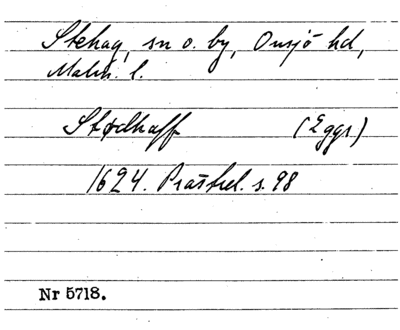 Stehag, sn o. by, Onsjö hd,
Malm. l.
Stødhaff (Eggr)
1624. Prästrel. s. 98
Nr 5718.